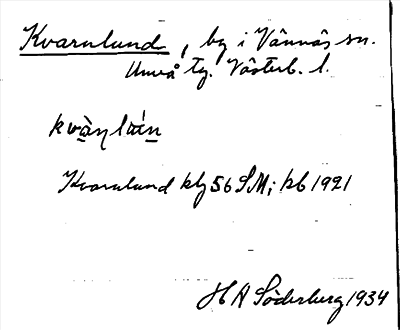 Kvarnlund, by i Vännäs sn.
Umeå tg. Västerb. l.
Kvarnlund blg 56 SM; kb 1921
H A Söderberg 1934